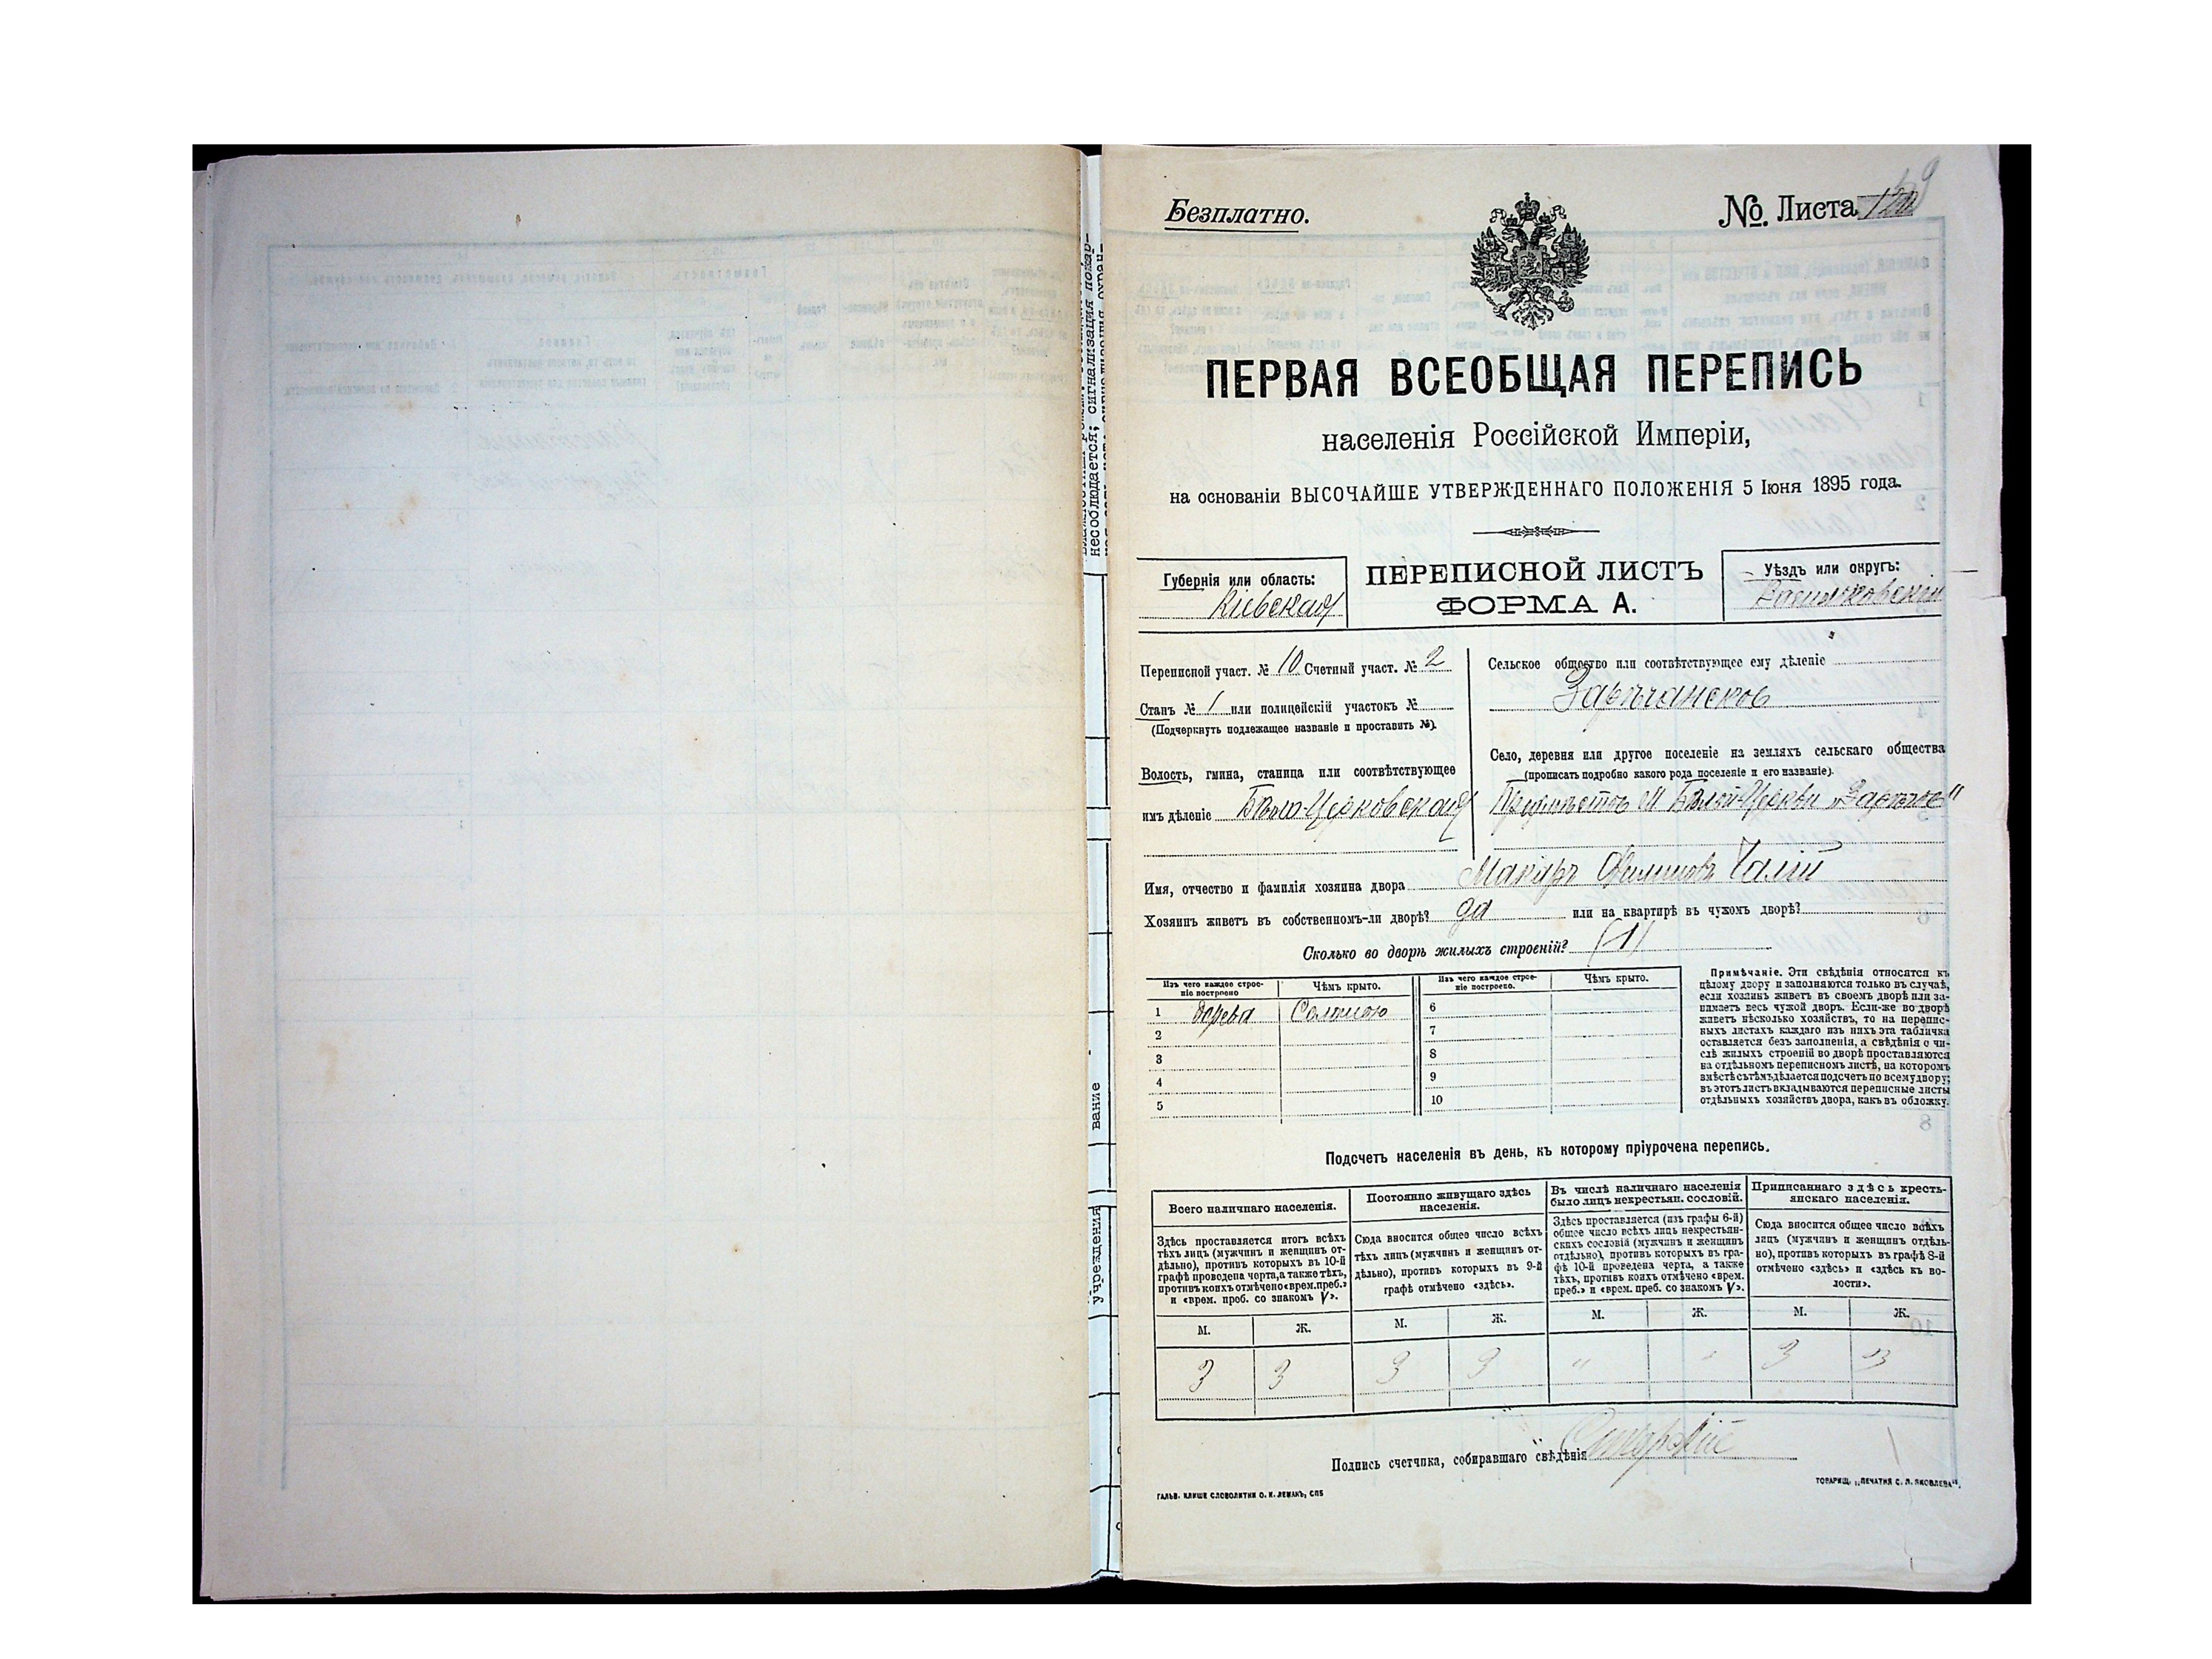 Безплатно.
№ Листа
ПЕРВАЯ ВСЕОБЩАЯ ПЕРЕПИСЬ
населенія Россійской Имперіи,
на основаніи ВЫСОЧАЙШЕ УТВЕРЖДЕННАГО ПОЛОЖЕНІЯ 5 Іюня 1895 года.
Губернія или область:
Кіевская
ПЕРЕПИСНОЙ ЛИСТЪ
ФОРМА А.
Уѣздъ или округъ:
Васильковскій
Переписной участ. № 10 Счетный участ. № 2
Станъ № 1 или полицейскій участокъ №
(Подчеркнуть подлежащее названіе и проставить №).
Волость, гмина, станица или соотвѣтствующее
имъ дѣленіе Бѣло-Церковская
Сельское общество или соотвѣтствующее ему дѣленіе
Зарѣчанское
Село, деревня или другое поселеніе на земляхъ сельскаго общества
(прописать подробно какого рода поселеніе и его названіе).
Предмѣстье М Бѣлой-Церкви „Зарѣчье"
Имя, отчество и фамилія хозяина двора Макаръ Чалій
Хозяинъ живетъ въ собственномъ-ли дворѣ? да или на квартирѣ въ чужомъ дворѣ?
Сколько во дворѣ жилыхъ строеній? (1)
Изъ чего каждое строеніе построено
Чѣмъ крыто.
Изъ чего каждое строеніе построено.
Чѣмъ крыто.
1 дерева Соломою 6
2 7
3 8
4 9
5 10
Примѣчаніе. Эти свѣдѣнія относятся къ
цѣлому двору и заполняются только въ случаѣ,
если хозяинъ живетъ въ своемъ дворѣ или за-
нимаетъ весь чужой дворъ. Если-же во дворѣ
живетъ нѣсколько хозяйствъ, то на перепис-
ныхъ листахъ каждаго изъ нихъ эта табличка
оставляется безъ заполненія, а свѣдѣнія о чи-
слѣ жилыхъ строеній во дворѣ проставляются
на отдѣльномъ переписномъ листѣ, на которомъ
вмѣстѣ съ тѣмъ дѣлается подсчетъ по всему двору;
въ этотъ листъ вкладываются переписные листы
отдѣльныхъ хозяйствъ двора, какъ въ обложку.
Подсчетъ населенія въ день, къ которому пріурочена перепись.
Всего наличнаго населенія.
Здѣсь проставляется итогъ всѣхъ
тѣхъ лицъ (мужчинъ и женщинъ от-
дѣльно), противъ которыхъ въ 10-й
графѣ проведена черта, а также тѣхъ,
противъ коихъ отмѣчено «врем. преб.»
и «врем. проб. со знакомъ V».
Постоянно живущаго здѣсь
населенія.
Сюда вносится общее число всѣхъ
тѣхъ лицъ (мужчинъ и женщинъ от-
дѣльно), противъ которыхъ въ 9-й
графѣ отмѣчено «здѣсь».
Въ числѣ наличнаго населенія
было лицъ некрестьян. сословій.
Здѣсь проставляется (изъ графы 6-й)
общее число всѣхъ лицъ некрестьян-
скихъ сословій (мужчинъ и женщинъ
отдѣльно), противъ которыхъ въ гра-
фѣ 10-й проведена черта, а также
тѣхъ, противъ коихъ отмѣчено «врем.
преб.» и «врем. преб. со знакомъ V».
Приписаннаго здѣсь кресть-
янскаго населенія.
Сюда вносится общее число всѣхъ
лицъ (мужчинъ и женщинъ отдѣль-
но), противъ которыхъ въ графѣ 8-й
отмѣчено «здѣсь» и «здѣсь къ во-
лости».
М. Ж. М. Ж. М. Ж. М. Ж.
3 3 3 3 " " 3 3
Подпись счетчика, собиравшаго свѣдѣнія
ГАЛЬВ. КЛИШЕ СЛОВОЛИТНИ О. И. ЛЕМАНЪ, СПБ
ТОВАРИЩ. „ПЕЧАТНЯ С. П. ЯКОВЛЕВА".
несоблюдается; сигнализация пожар-
вание
учреждения